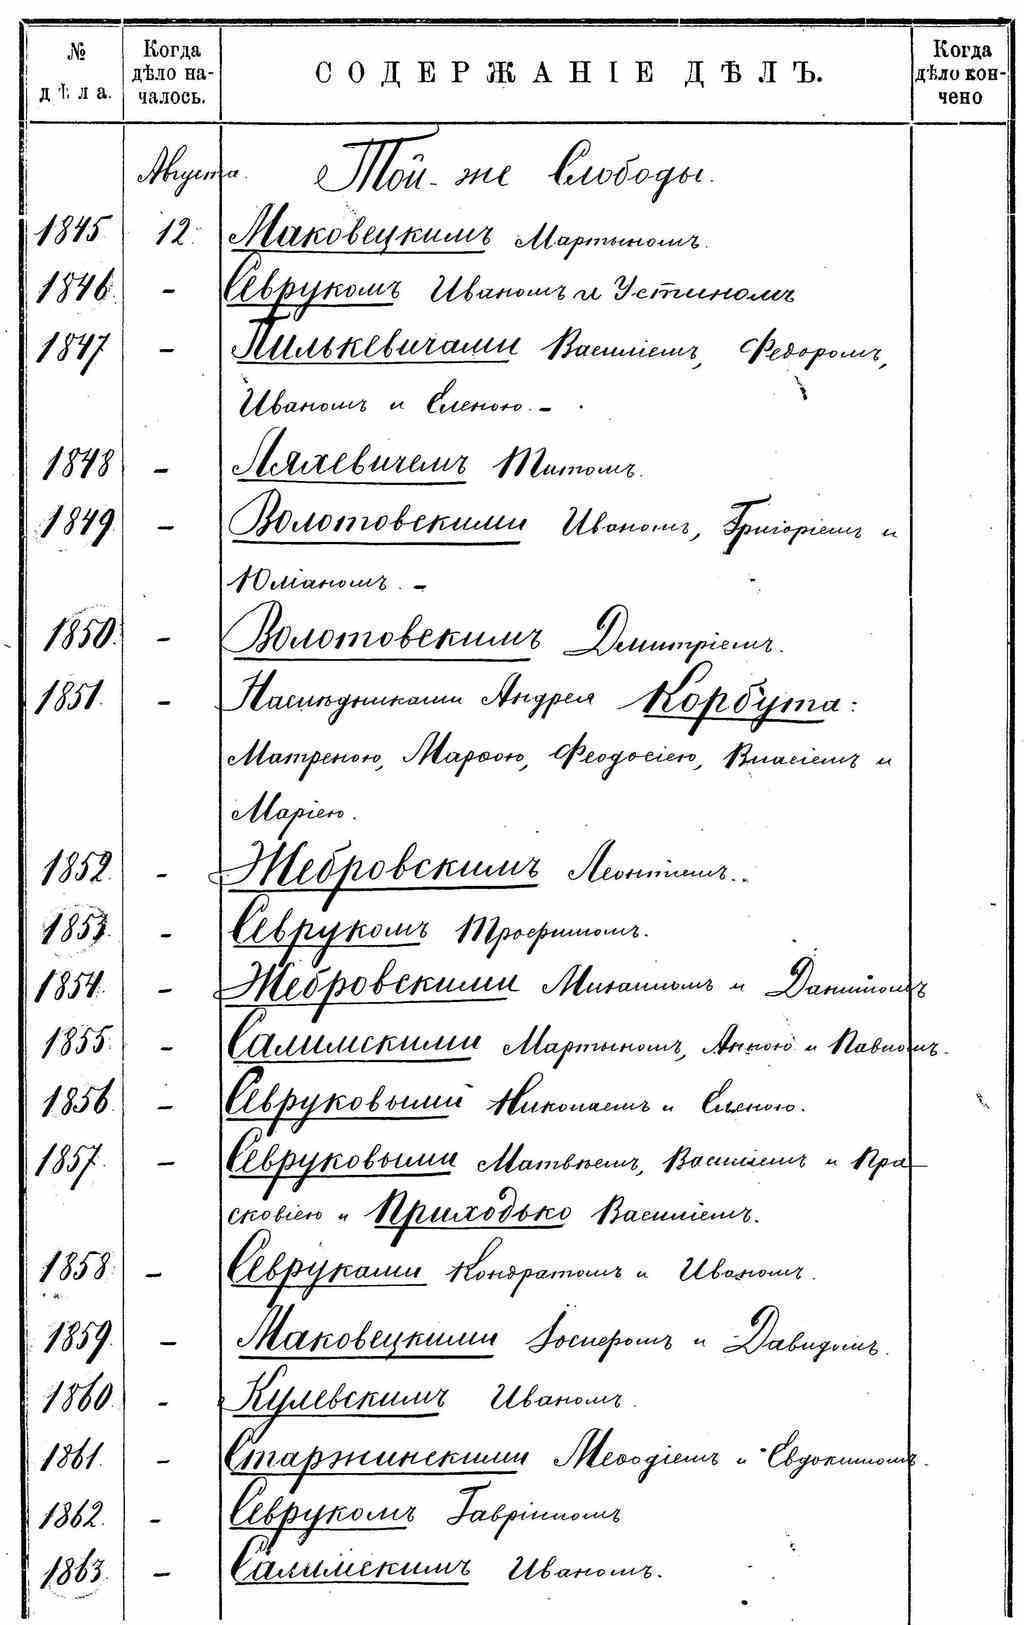 № дѣла. Когда дѣло началось. СОДЕРЖАНІЕ ДѢЛЪ. Когда дѣло кончено
Августа. Той-же Слободы.
1845 12. Маковецкимъ Мартыномъ.
1846. - Севрукомъ Иваномъ и Устиномъ
1847 - Пилькевичами Василіемъ, Федоромъ,
Иваномъ и Еленою. -
1848 - Ляхевичемъ Титомъ.
1849. - Волотовскими Иваномъ, Григоріемъ и
Юліаномъ. -
1850. - Волотовскимъ Дмитріемъ.
1851. - Наслѣдниками Андрея Корбута:
Матреною, Марѳою, Феодосіею, Власіемъ и
Маріею.
1852. - Жебровскимъ Леонтіемъ.
1853. - Севрукомъ Трофимомъ.
1854. - Жебровскими Михаиломъ и Даниіломъ
1855. - Салимскими Мартыномъ, Анною и Павломъ.
1856. - Севруковыми Николаемъ и Еленою.
1857. - Севруковыми Матвѣемъ, Василіемъ и Пра-
сковіею и Приходько Василіемъ.
1858. - Севруками Кондратомъ и Иваномъ.
1859. - Маковецкими Іосиферомъ и Давидомъ.
1860. - Кулевскимъ Иваномъ.
1861. - Старжинскими Меѳодіемъ и Евдокимомъ.
1862. - Севрукомъ Гавріиломъ
1863. - Салимскимъ Иваномъ.